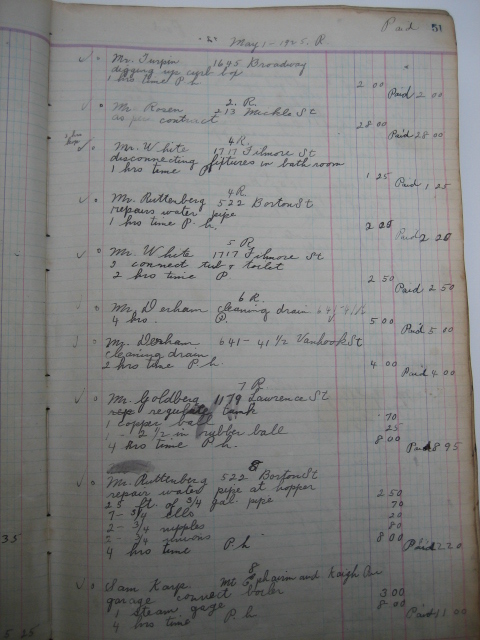 Paid 51
May 1 - 1925. R
Mr. Turpin 1695 Broadway
digging up curb box
1 hrs time P.h 2 00 Paid 2 00
2. R.
Mr. Rosen 213 Mickle St
as per contract 28 00 Paid 28 00
4 R.
Mr. White 1717 Filmore St
disconnecting fixtures in bath room
1 hrs time P 1 25 Paid 1 25
4 R.
Mr. Ruttenberg 522 Borton St
repairs water pipe
1 hrs time P. h. 2 20 Paid 2 20
5 R
Mr. White 1717 Filmore St
2 connect tub & toilet
2 hrs time P 2 50 Paid 2 50
6 R.
Mr Derham cleaning drain
4 hrs. P. 5 00 Paid 5 00
Mr. Derham 641-41 1/2 Vanhook St
cleaning drain
2 hrs time P.h 4 00 Paid 4 00
7 R
Mr. Goldberg 1179 Lawrence St
rep regulate tank
1 copper ball 70
1 - 2 1/2 in rubber ball 25
4 hrs time P.h. 8 00 Paid 8 95
8
Mr. Ruttenberg 522 Borton St
repair water pipe at hopper
25 ft of 3/4 gal. pipe 2 50
7 - 3/4 Ells 70
2 - 3/4 nipples 20
3/4 unions 80
4 hrs time P.h 8 00 Paid
35
8
Sam Karp. Mt Ephairm and Kaigh Ave
garage connect boiler
1 Steam gage 3 00
4 hrs time P. h 8 00 Paid 11 00
5 25